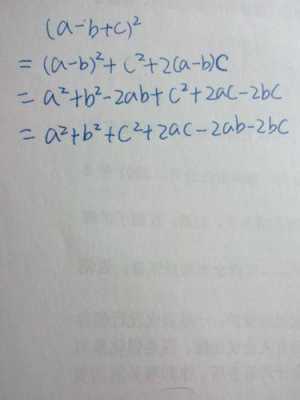 (a-b+c)²
= (a-b)²+c²+2(a-b)c
= a²+b²-2ab+c²+2ac-2bc
= a²+b²+c²+2ac-2ab-2bc